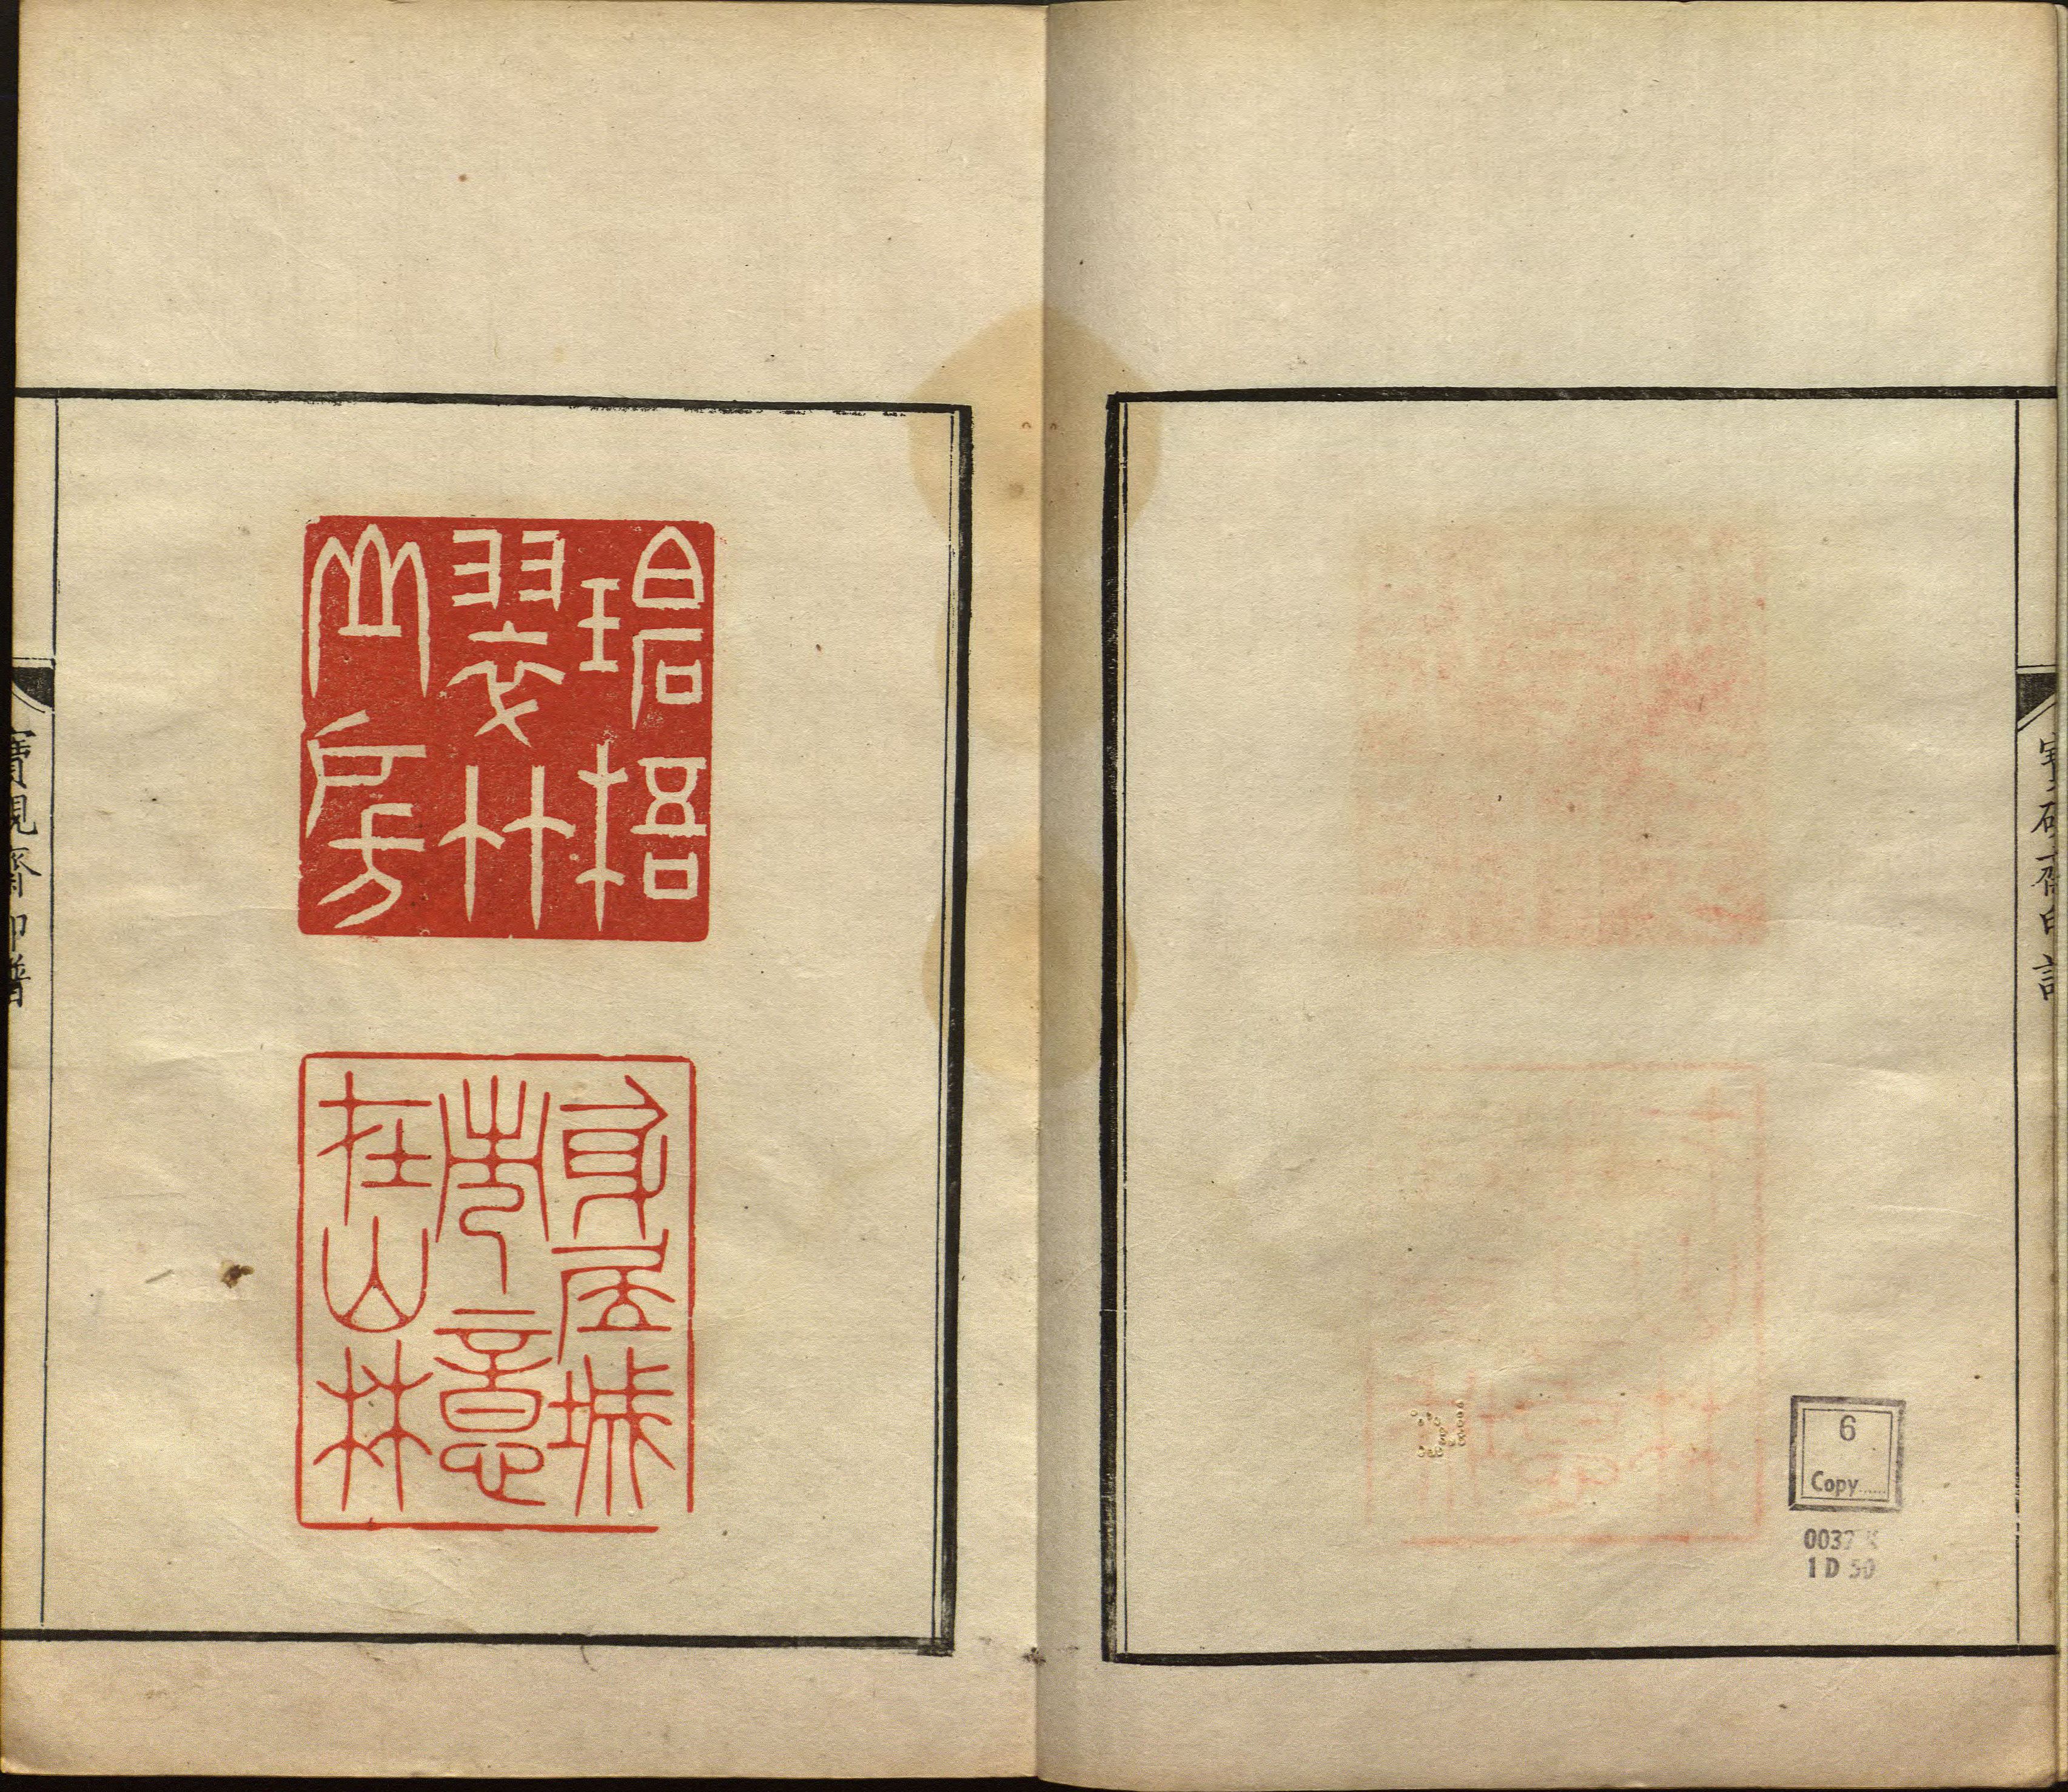 寶硯齋印譜
6
Copy......
1 D 50
碧梧
翠竹
山房
身居城
市意
在山林
寶硯齋印譜